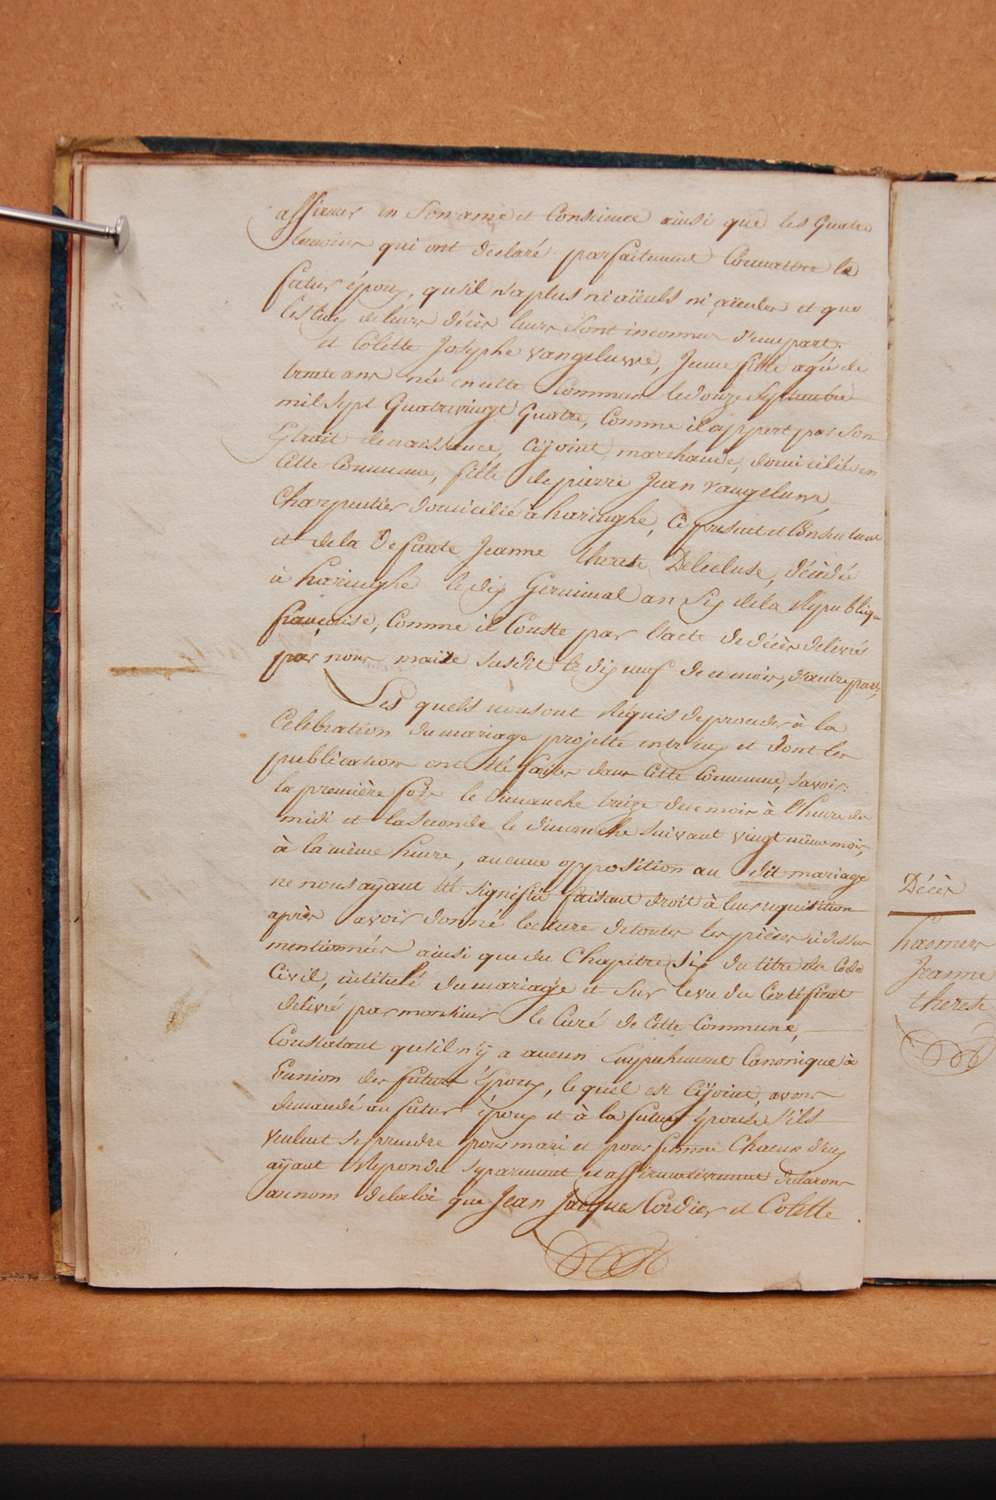 affirmer en son ame et Conscience ainsi que les quatre
temoins qui ont declaré parfaitement Connaitre le
futur époux, qu'il n'a plus ni aïeuls ni aïeules et que
les lieux de leurs décès leurs sont inconnus d'une part.
et Colette Josephe vangeluwe, Jeune fille agée de
trente ans née en cette Commune le douze Septembre
mil Sept Quatrevingt Quatre, Comme il appert par son
Extrait de naissance, cijoint, marchande, domiciliée en
Cette Commune, fille de pierre Jean vangeluwe
Charpentier domicilié à haringhe, Ci present et Consentant
et de la Defunte Jeanne therese Delecluse, décédée
à haringhe le dix Germinal an Six de la Republiq-
française, Comme il Conste par l'acte de décès delivré
par nous maire susdit le dix neuf de ce mois, d'autre part,
Les quels nous ont Requis de proceder à la
Celebration du mariage projetté entr'eux et dont les
publication ont été faites dans Cette Commune, Savoir:
la première fois le Dimanche treize du mois à l'heure de
midi et la Seconde le dimanche Suivant vingt même mois,
à la même heure, aucune opposition au dit mariage
ne nous ayant été signifiée faisant droit à leur requisition
après avoir donné lecture de toutes les pièces ci dessus
mentionnées ainsi que du Chapitre Six du titre du Code
Civil, intitulé du mariage et Sur le vu du Certificat
delivré par monsieur le Curé de Cette Commune,
Constatant qu'il n'y a aucun Empechement Canonique à
l'union des futurs Epoux, le quel est Cijoint, avons
demandé au futur époux et à la future épouse s'ils
veulent se prendre pour mari et pour femme Chacun d'eux
ayant Repondu separement et affirmativement declarons
au nom de la loi que Jean Jacques Cordier et Colette
Décès
haemers
Jeanne
therese